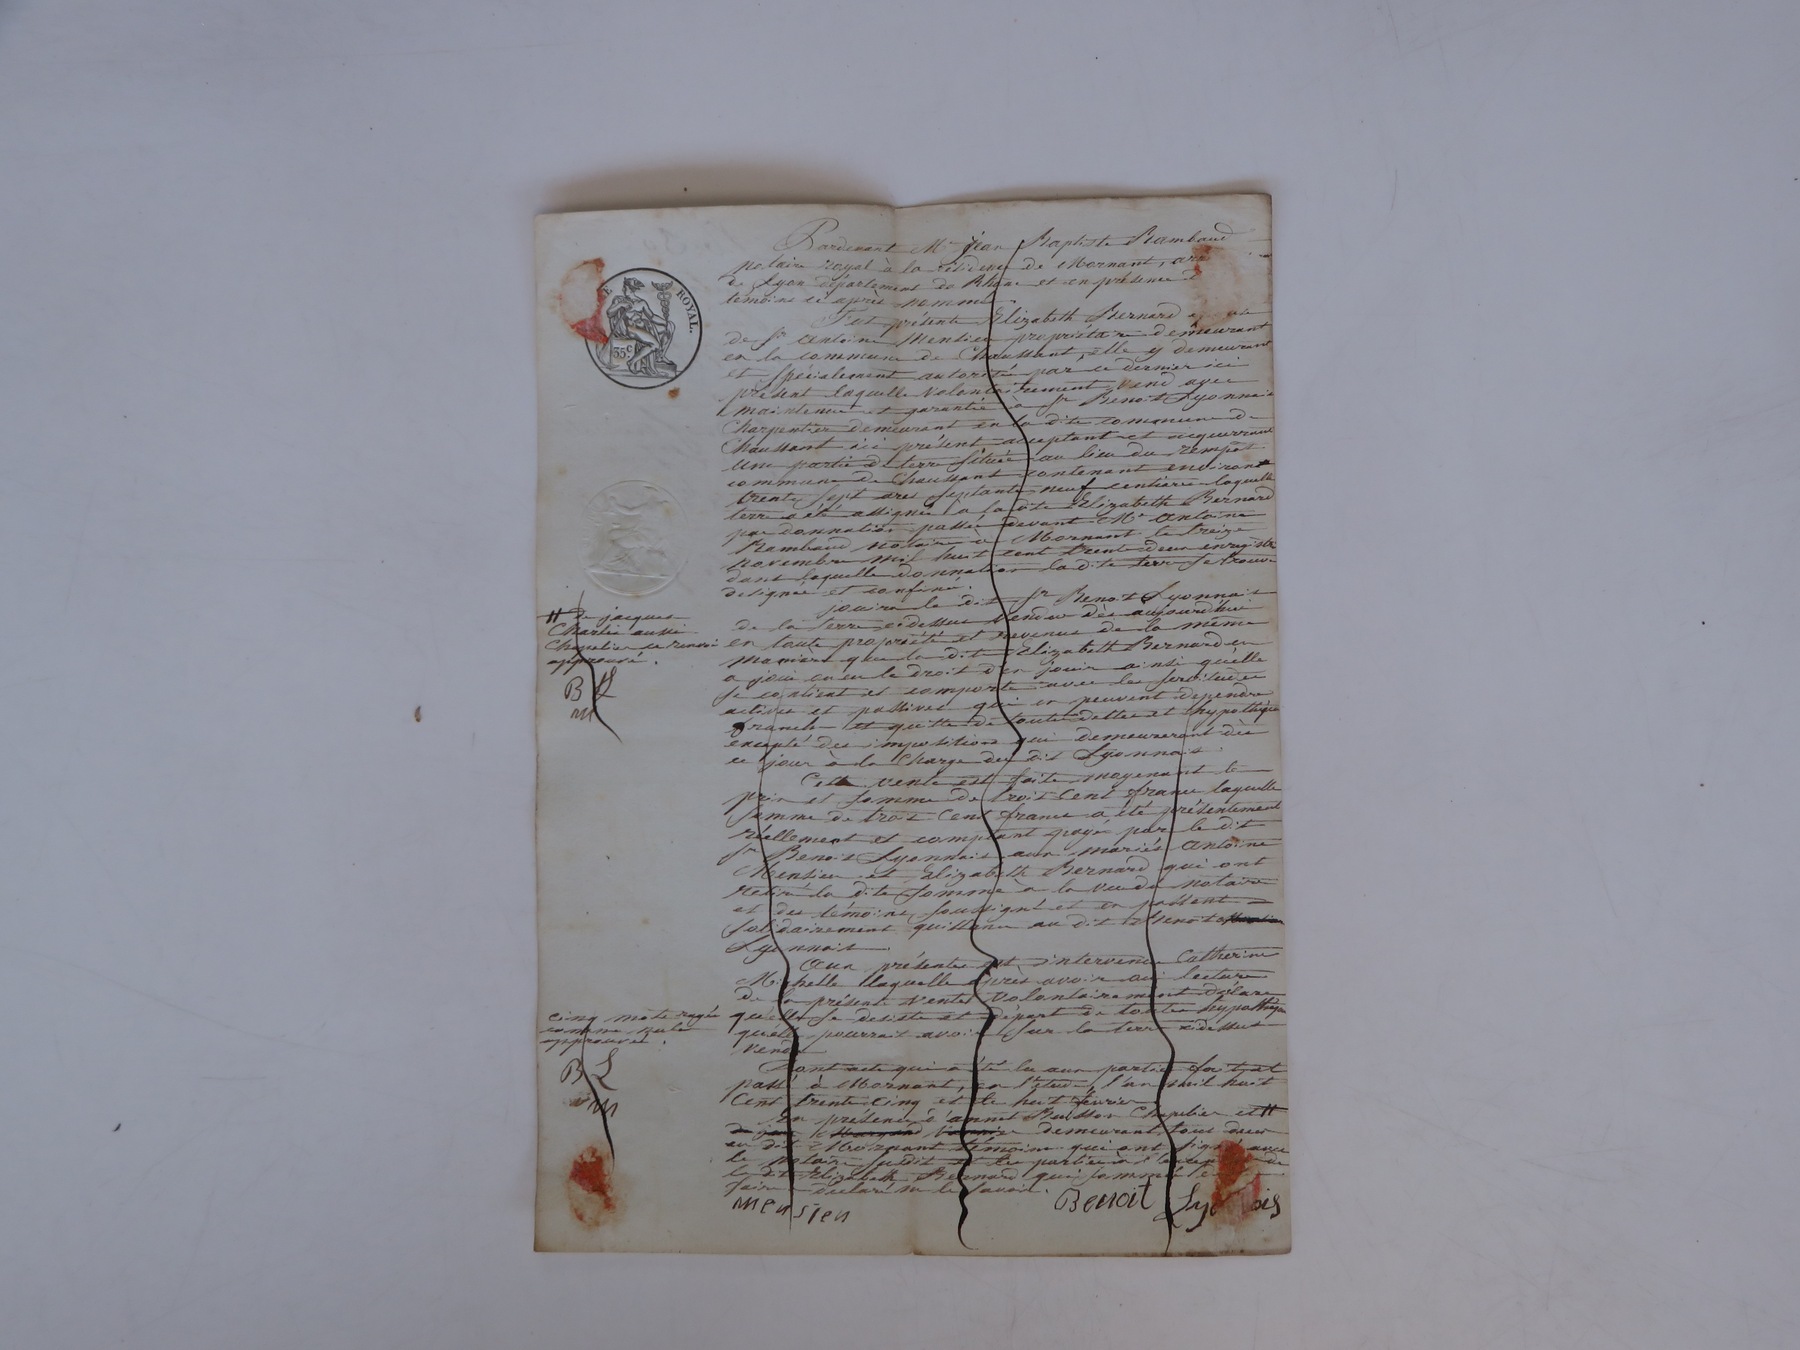 Pardevant Me Jean Baptiste Rambaud
notaire royal à la résidence de Mornant, arr
de Lyon département du Rhône et en présence d
témoins ci après nommé.
Fut présente Elizabeth Bernard
de Sr antoine Mensieu propriétaire demeurant
en la commune de Chaussant, elle y demeurant
et spécialement autorisée par ce dernier ici
présent laquelle volontairement vend avec
maintenue et garantie à Sr Benoit Lyonnais
Charpentier demeurant en la dite commune de
Chaussant ici présent acceptant et acquerreur
une partie de terre située au lieu du
commune de Chaussant contenant environ
trente sept ares septante neuf centiares laquelle
terre a été assignée à la dite Elizabeth Bernard
par donnation passée devant Me antoine
Rambaud notaire à Mornant le treize
novembre mil huit cent trente deux enregistré
dans laquelle donnation la dite terre se trouve
designée et confinée.
jouira le dit Sr Benoit Lyonnais
de la terre ci dessus vendue dès aujourd'hui
en toute propriété et revenus de la même
manière que la dite Elizabeth Bernard en
a joui ou eu le droit d'en jouir ainsi qu'elle
se contient et comporte avec les servitudes
actives et passives qui en peuvent dependre
franche et quitte de toute dettes et hypothèque
excepté des impositions qui demeureront dès
ce jour à la Charge du dit Lyonnais.
Cette vente est faite moyenant le
prix et somme de trois Cent francs laquelle
somme de trois Cent francs a été présentement
réellement et comptant payée par le dit
Sr Benoit Lyonnais aux mariés antoine
Mensieu et Elizabeth Bernard qui ont
retiré la dite somme à la vue du notaire
et des témoins soussigné et en passent
solidairement quittance au dit Benoit
Lyonnais
Aux présentes est intervenue Catherine
Michelle laquelle après avoir oui lecture
de la présente vente volontairement déclare
qu'elle se desiste et départ de toutes hypothèque
qu'elle pourrait avoir sur la terre ci dessus
vendu
Dont acte qui a été lu aux parties fait et
passé à Mornant, en l'étude, l'an mil huit
Cent trente cinq et le huit février
En présence d'annet Buisson Chapelier et #
demeurant tous deux
au dit Mornant témoins qui ont signé avec
le notaire susdit et les parties à l'exception de
la dte Elizabeth Bernard qui sommée de
faire a déclaré ne le savoir.
mensien Benoit Lyonnois
E ROYAL.
35c
# de jacques
Charlie aussi
Chapelier ce renvoi
approuvé.
B L
m
cinq mots rayés
comme nuls
approuvés.
B L
m